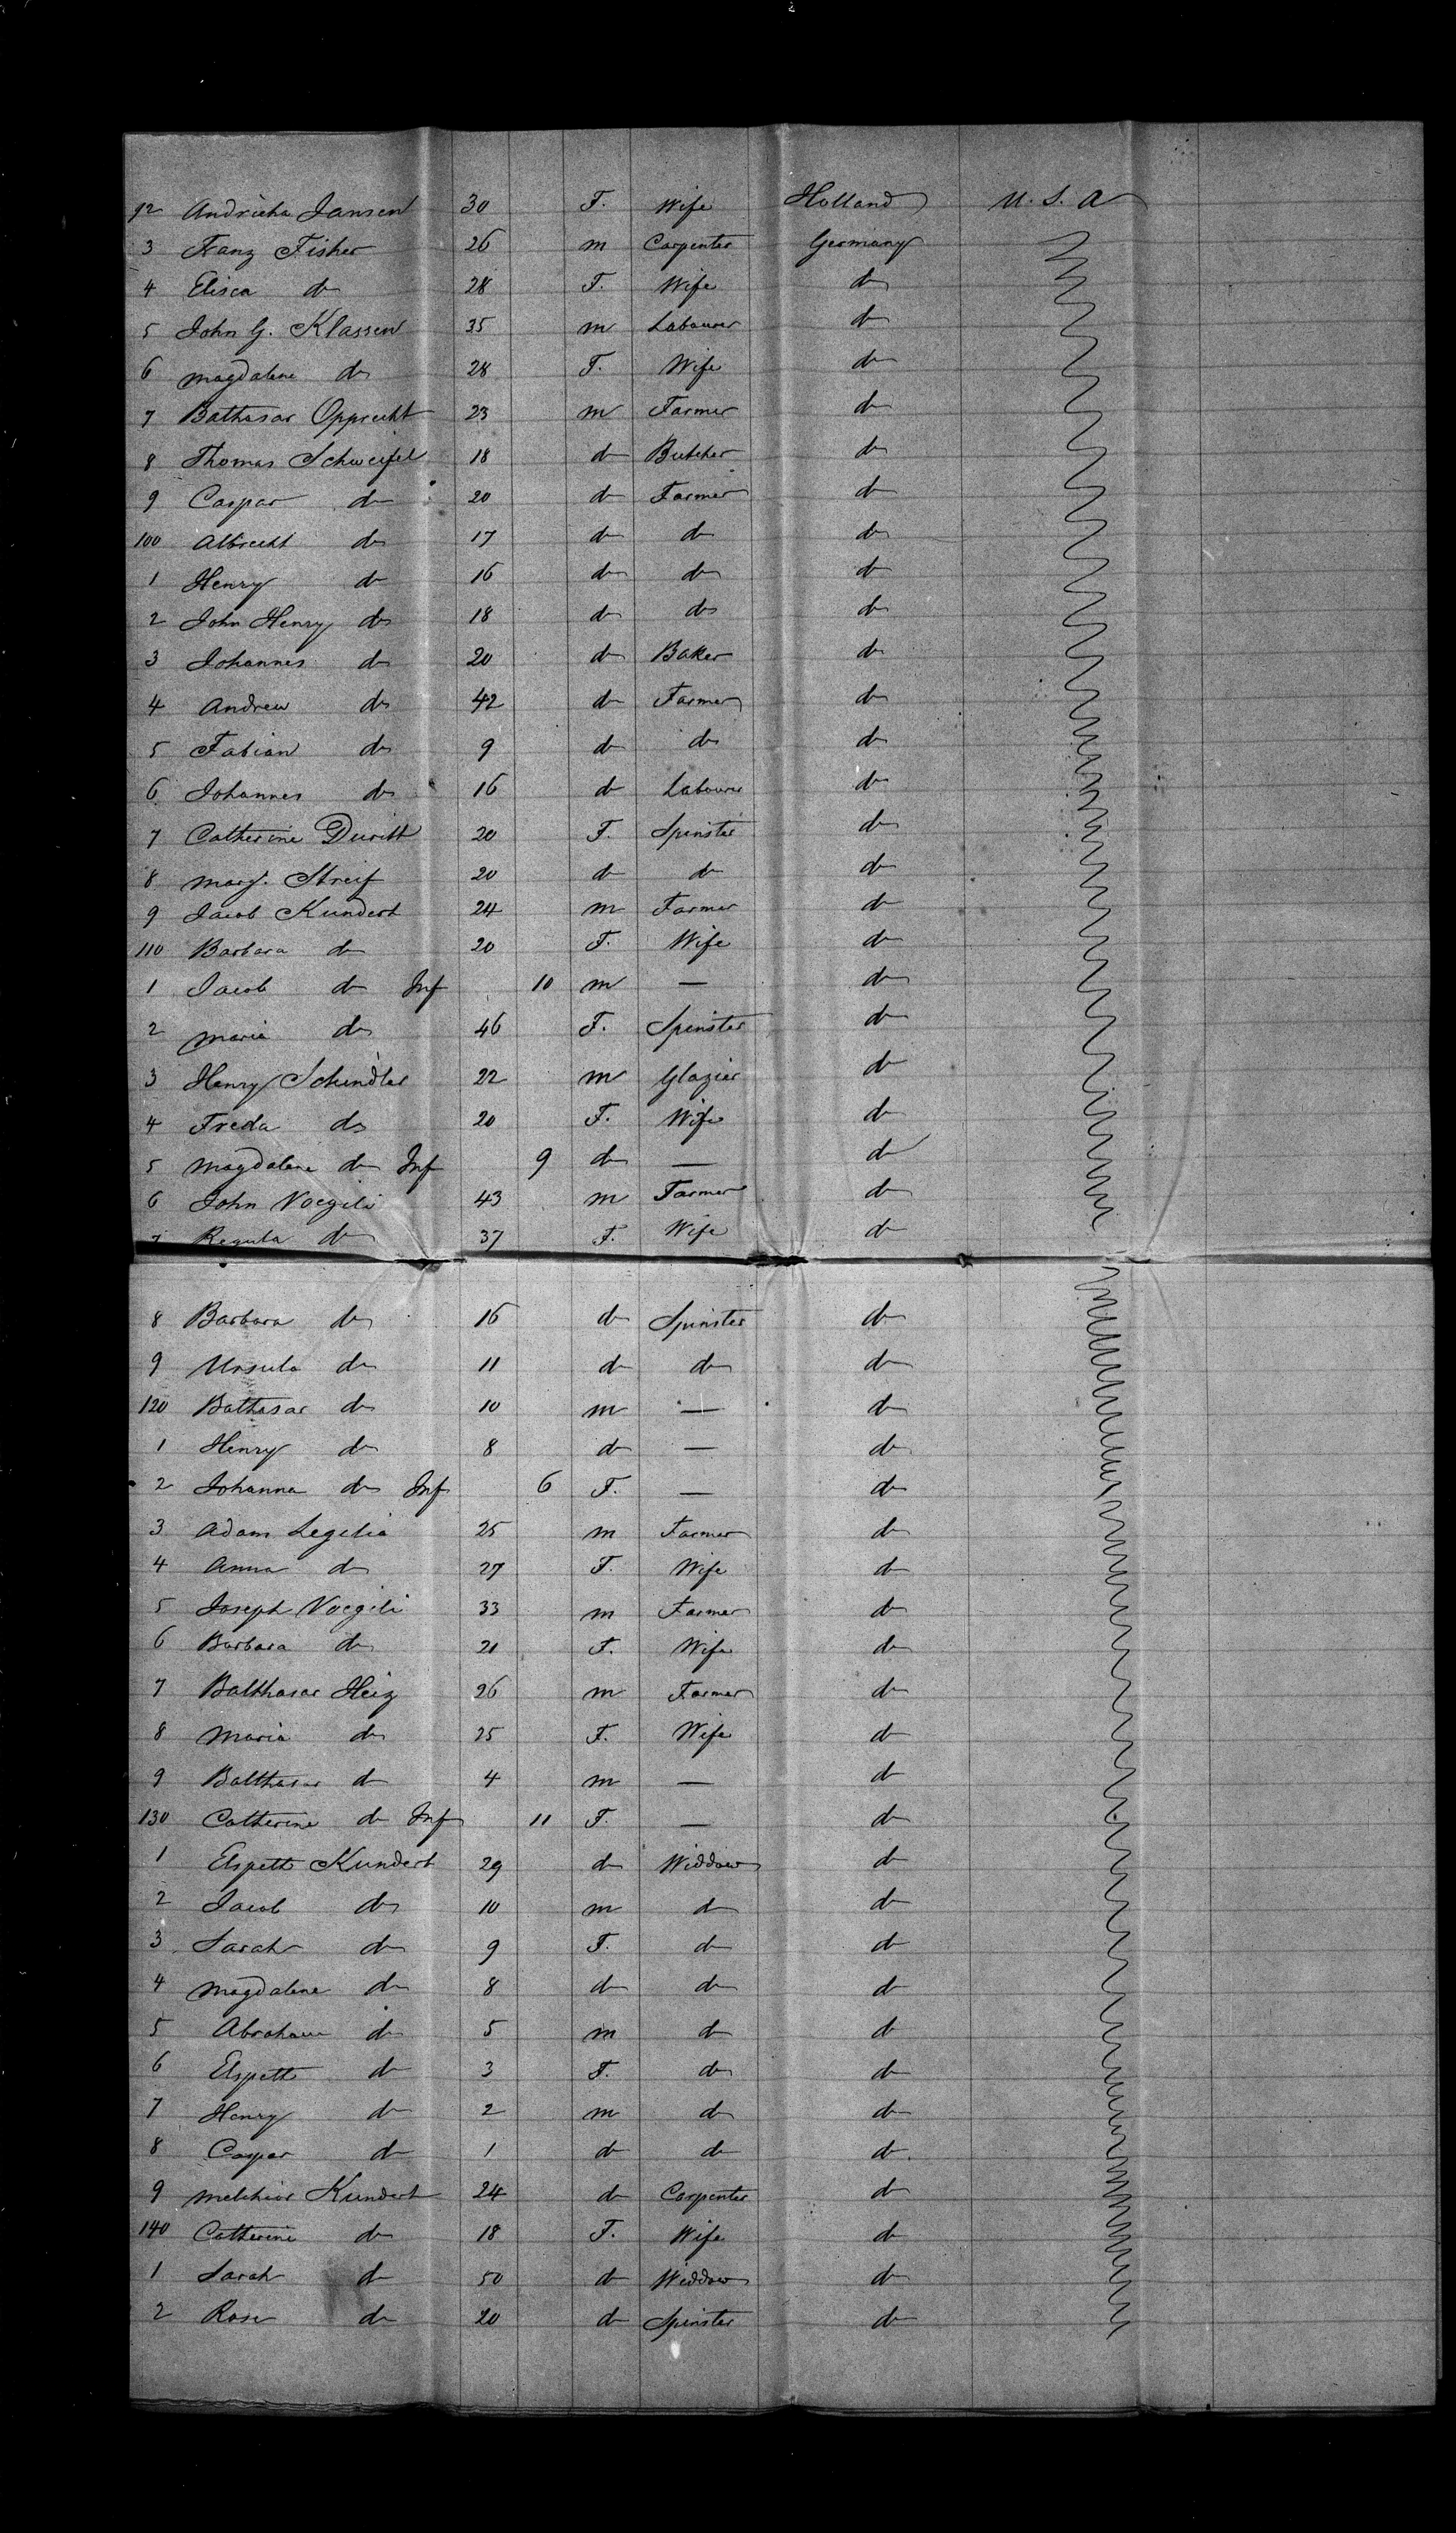 92 Andrieha Jansen 30 F. Wife Holland U. S. A
3 Franz Fisher 26 m Carpenter Germany
4 Elisca do 28 F. Wife do
5 John G. Klassen 35 m Labourer do
6 Magdalene do 28 F. Wife do
7 Balthasar Opprecht 23 m Farmer do
8 Thomas Schweifel 18 do Butcher do
9 Caspar do 20 do Farmer do
100 Albrecht do 17 do do do
1 Henry do 16 do do do
2 John Henry do 18 do do do
3 Johannes do 20 do Baker do
4 Andrew do 42 do Farmer do
5 Fabian do 9 do do do
6 Johannes do 16 do Labourer do
7 Catherine Durist 20 F. Spinster do
8 Marg. Streif 20 do do do
9 Jacob Kundert 24 m Farmer do
110 Barbara do 20 F. Wife do
1 Jacob do Inf 10 m — do
2 Maria do 46 F. Spinster do
3 Henry Schindler 22 m Glazier do
4 Freda do 20 F. Wife do
5 Magdalene do Inf 9 do — do
6 John Voegili 43 m Farmer do
7 Regula do 37 F. Wife do
8 Barbara do 16 do Spinster do
9 Ursula do 11 do do do
120 Balthasar do 10 m — do
1 Henry do 8 do — do
2 Johanna do Inf 6 F. — do
3 Adam Legelia 25 m Farmer do
4 Anna do 27 F. Wife do
5 Joseph Voegili 33 m Farmer do
6 Barbara do 21 F. Wife do
7 Balthasar Heiz 26 m Farmer do
8 Maria do 25 F. Wife do
9 Balthasar do 4 m — do
130 Catherine do Inf 11 F. — do
1 Elspeth Kundert 29 do Widdow do
2 Jacob do 10 m do do
3 Sarah do 9 F. do do
4 Magdalene do 8 do do do
5 Abraham do 5 m do do
6 Elspeth do 3 F. do do
7 Henry do 2 m do do
8 Caspar do 1 do do do
9 Melchior Kundert 24 do Carpenter do
140 Catherine do 18 F. Wife do
1 Sarah do 50 do Widdow do
2 Rose do 20 do Spinster do